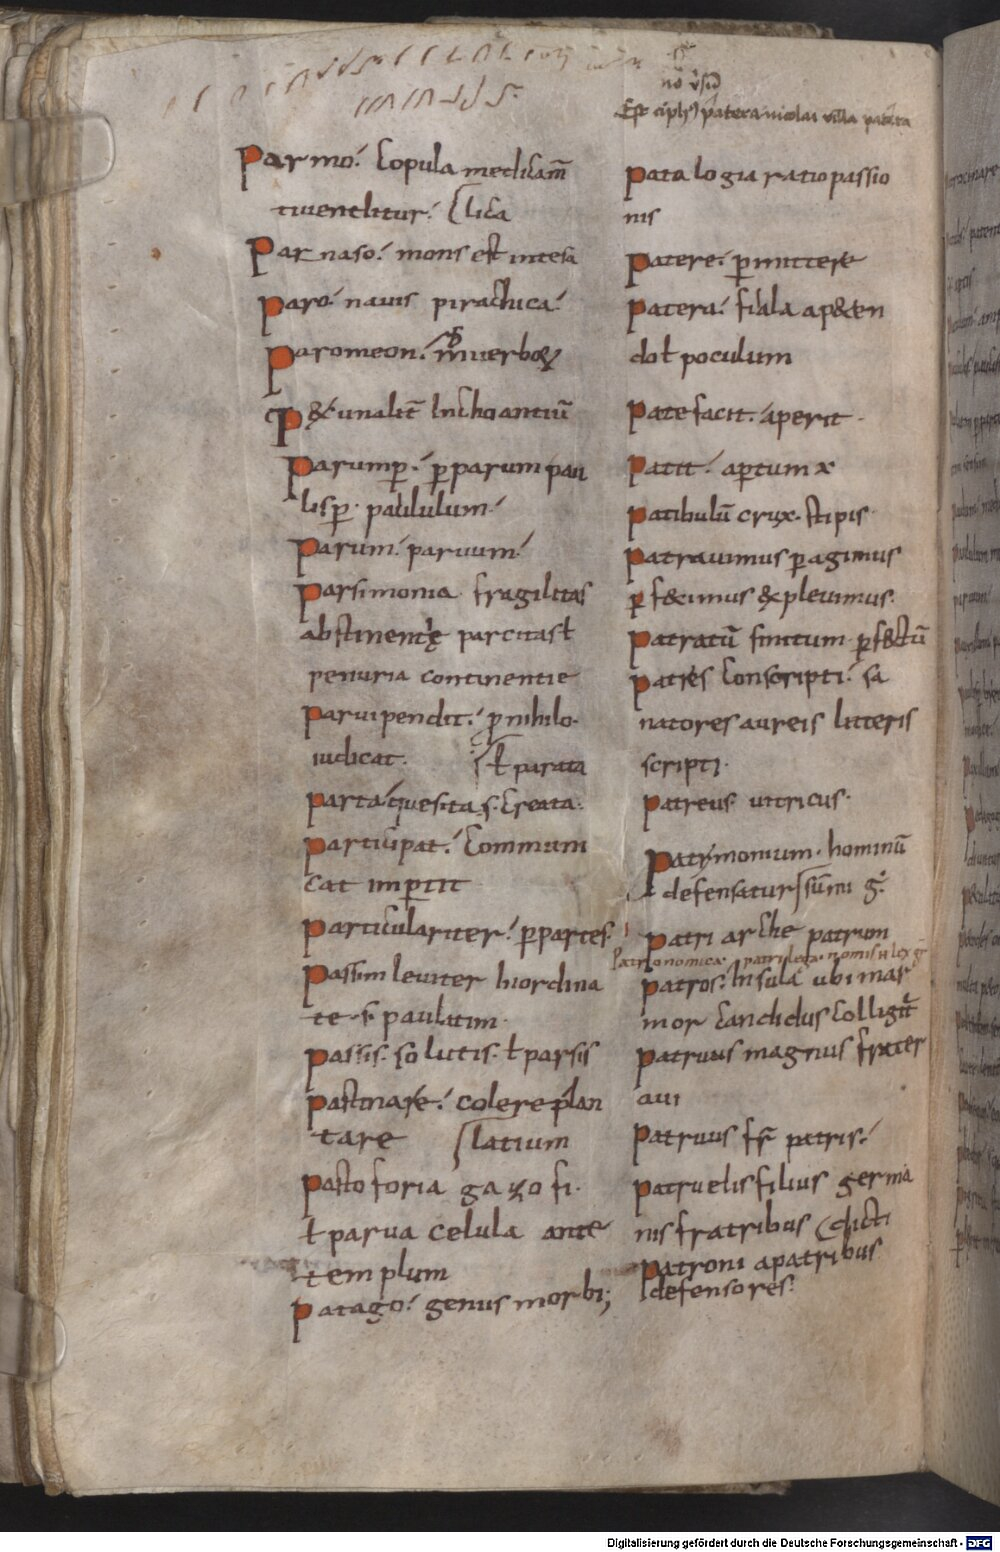 no ūsū
Est ciph᷒ patera nicolai villa patera
Parmo·́ Copula medicam̄
tiuenditur·́ ʃlica
Parnaso·́ mons est intesa
Paro·́ nauis pirachica·́
Paromeon·́ uerboꝝ
P &unalit̄ Inchoantiū
Parumꝑ·́ ꝑparum pau
lisꝑ· paululum·́
Parum·́ paruum·́
Parsimonia· fragilitas
abstinentię parcitas ƚ
penuria continentie
Paruipendit·́ ꝓnihilo·
iudicat· ʃƚ parata
Parta·́ quesita s· Creata·
Participat·́ Communi
cat impꝑtit
Particulariter·́ ꝑpartes·
Passim leuiter Inordina
te· s· paulatim·
Passis· solutis· ƚ parsis
Pastinare·́ colere plan
tare ʃlatium
Pastoforia gazofi·
ƚ parua celula ante
templum
Patago·́ genus morbi;
Patalogia ratio passio
nis
Patere·́ ꝑmittere
Patera·́ fiala ap&en
do ƚ poculum
Patefacit·́ aperit·
Patit·́ aꝑtum x
Patibulū crux· stipis·
Patrauimus ꝑagimus
ꝑf&imus &pleuimus·
Patratū finitum· ꝑf&ctū
Patres Conscripti·́ sa
natores aureis litteris
scripti·
Patreus· uitricus·
Patrimonium· hominū
defensatur ʃsūmi g̅·
Patriarche patrum
Patronomica· patri lex· nomis .i. lex gr̄
Patros·́ Insula ubi mar
mor Candidus Colligit̄
Patruus magnus frater
aui
Patruus fr̄ patris·́
Patruelis filius germa
nis fratribus (dicti
Patroni apatribus
defensores·
Digitalisierung gefördert durch die Deutsche Forschungsgemeinschaft - DFG